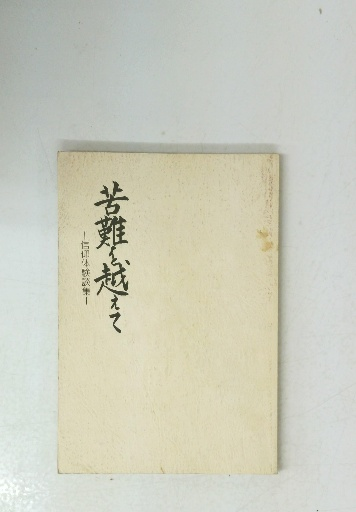 苦難を越えて
―信仰体験談集―